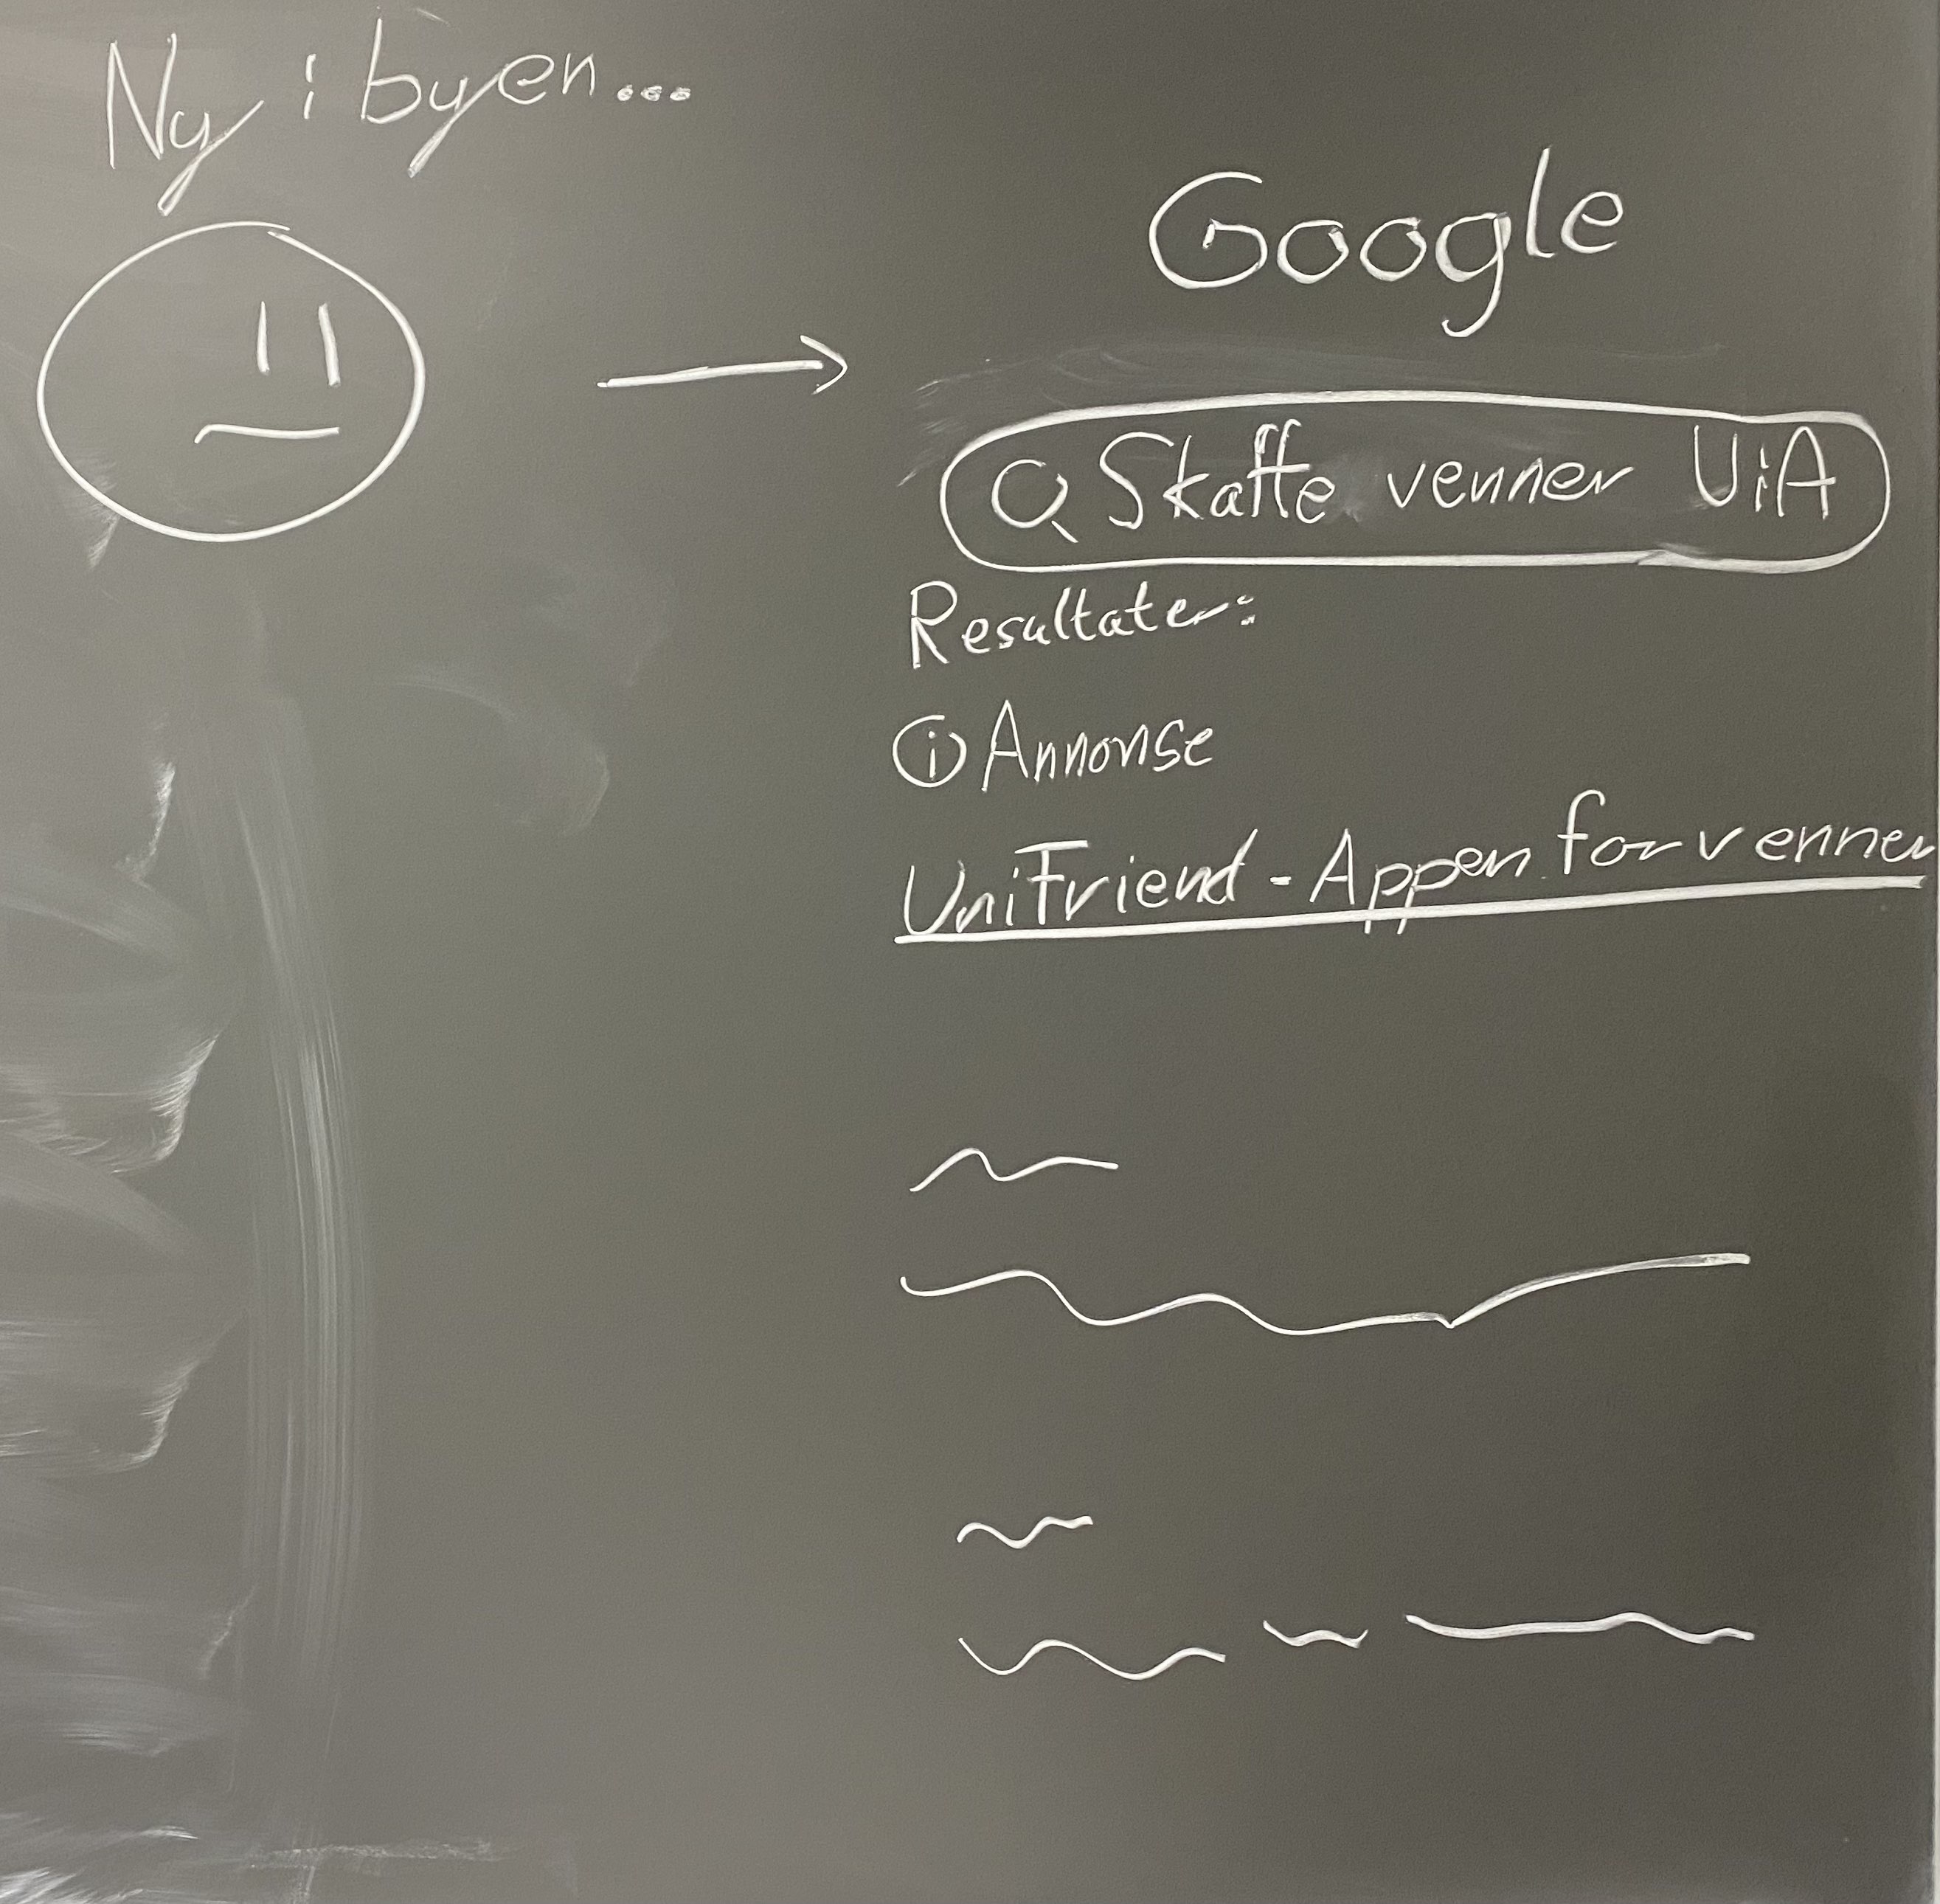 Ny i byen...
Google
Skaffe venner UiA
Resultater:
i Annonse
UniFriend - Appen for venner